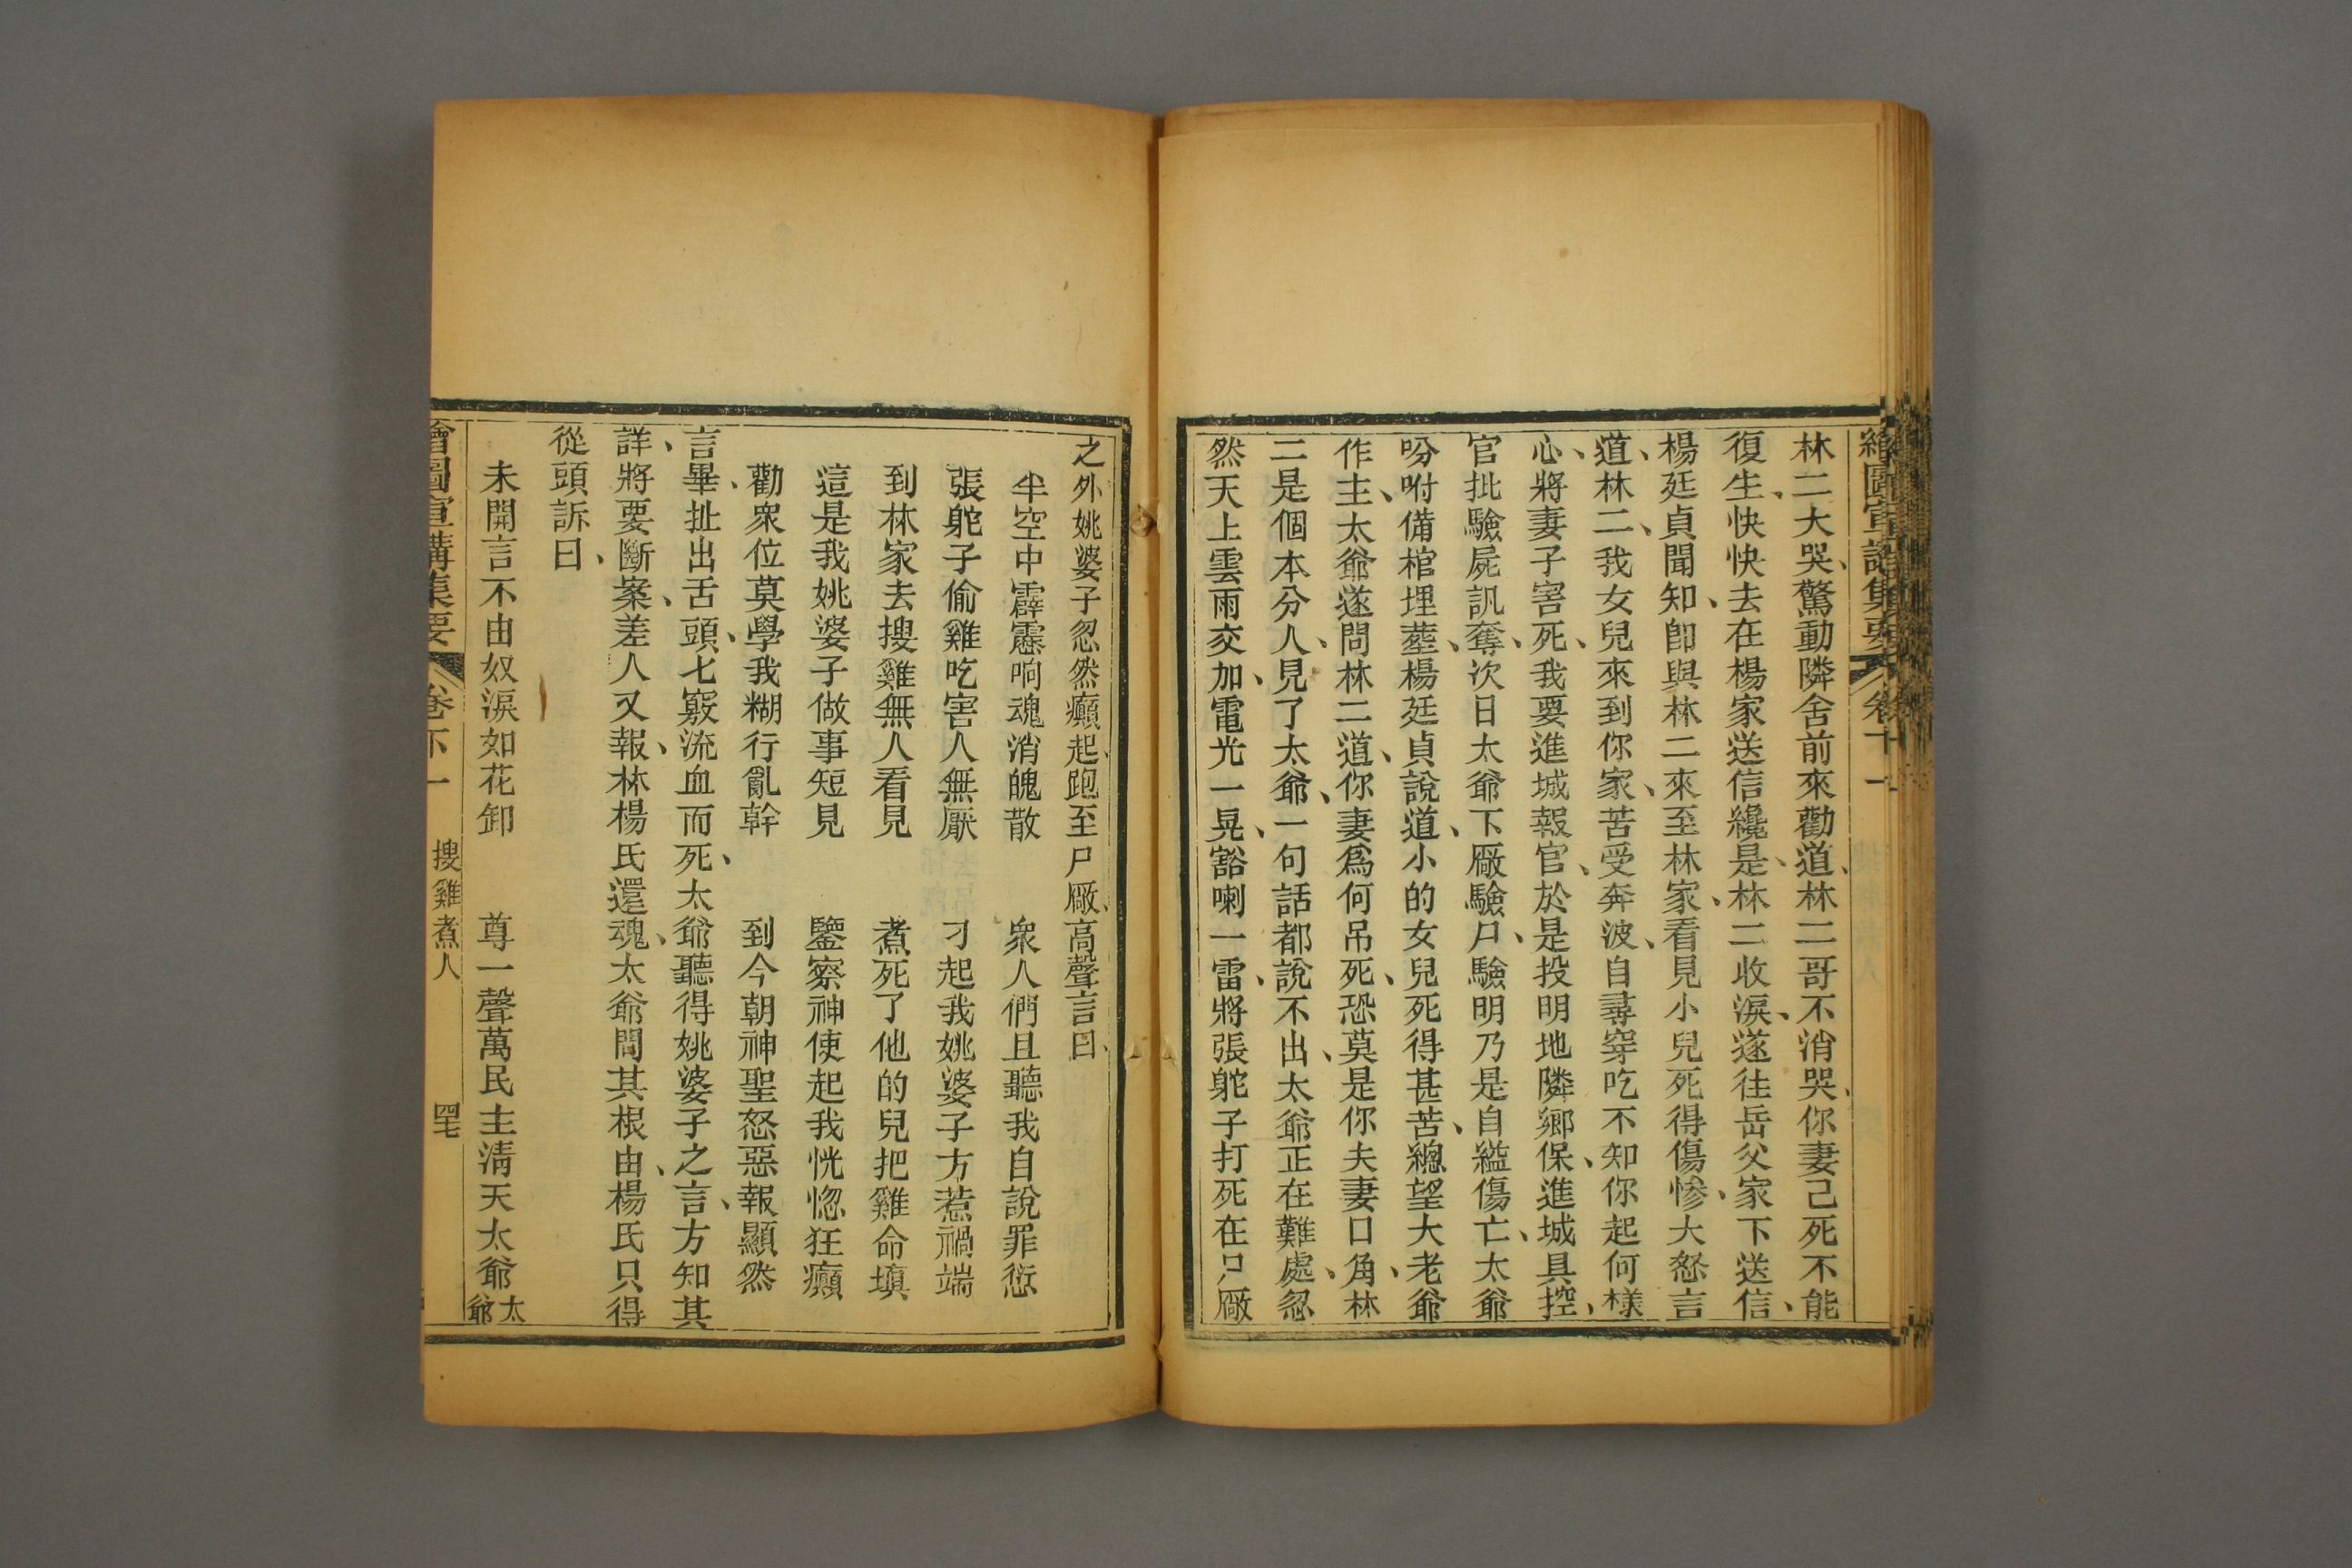 林二大哭、驚動隣舍前來勸道、林二哥不消哭、你妻己死不能
復生、快快去在楊家送信纔是、林二收淚、遂往岳父家下送信、
楊廷貞聞知、卽與林二來至林家、看見小兒死得傷慘、大怒言
道、林二、我女兒來到你家、苦受奔波、自尋穿吃不知你起何樣
心、將妻子害死、我要進城報官、於是投明地隣鄉保、進城具控、
官批驗屍訊奪、次日太爺下厰驗尸、驗明乃是自縊傷亡、太爺
吩咐備棺埋塟、楊廷貞說道、小的女兒死得甚苦、總望大老爺
作主、太爺遂問林二道、你妻爲何吊死、恐莫是你夫妻口角、林
二是個本分人、見了太爺、一句話都說不出、太爺正在難處、忽
然天上雲雨交加、電光一晃、豁喇一雷、將張鴕子打死在尸厰
之外姚婆子忽然癲起、跑至尸厰、高聲言曰、
半空中霹靂响魂消魄散 衆人們且聽我自說罪愆
張鴕子偷雞吃害人無厭 刁起我姚婆子方惹禍端
到林家去搜雞無人看見 煮死了他的兒把雞命塡
這是我姚婆子做事短見 鑒察神使起我恍惚狂癲
勸衆位莫學我糊行亂幹 到今朝神聖怒惡報顯然
言畢、扯出舌頭、七竅流血而死、太爺聽得姚婆子之言、方知其
詳、將要斷案、差人又報、林楊氏還魂、太爺問其根由、楊氏只得
從頭訴曰、
未開言不由奴淚如花卸 尊一聲萬民主淸天太爺 太爺
繪圖宣講集要 卷十一 搜雞煮人 四七